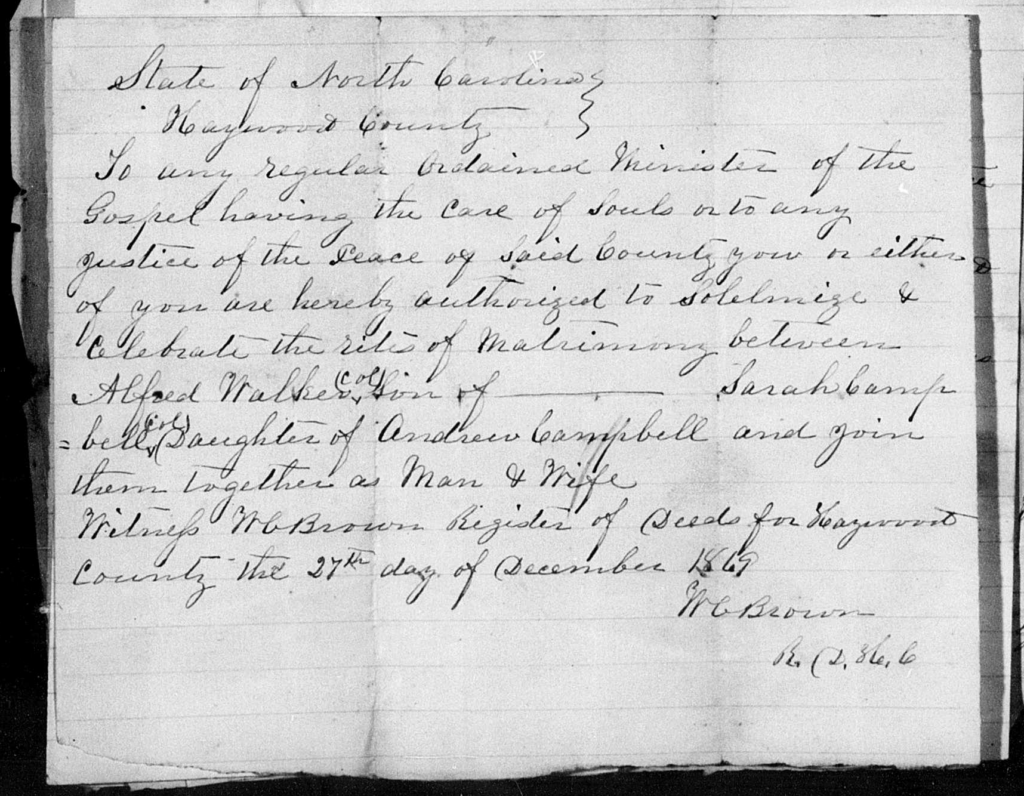 State of North Carolina }
Haywood County }
To any regular Ordained Minister of the
Gospel having the Care of Souls or to any
Justice of the Peace of Said County you or either
of you are hereby authorized to Solelmize &
Celebrate the rites of Matrimony between
Alfred Walker (Col) Son of ——— Sarah Camp
=bell (Col) Daughter of Andrew Campbell and Join
them together as Man & Wife
Witness W C Brown Register of Deeds for Haywood
County the 27th day of December 1869
W C Brown
R. D. H. C